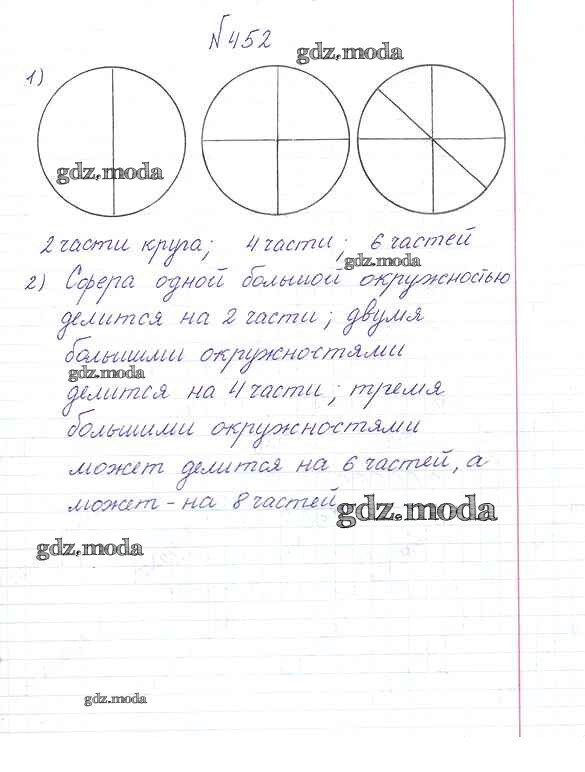 № 452
gdz.moda
1)
gdz.moda
2 части круга; 4 части; 6 частей
gdz.moda
2) Сфера одной большой окружностью
делится на 2 части; двумя
большими окружностями
gdz.moda
делится на 4 части; тремя
большими окружностями
может делится на 6 частей, а
может - на 8 частей
gdz.moda
gdz.moda
gdz.moda